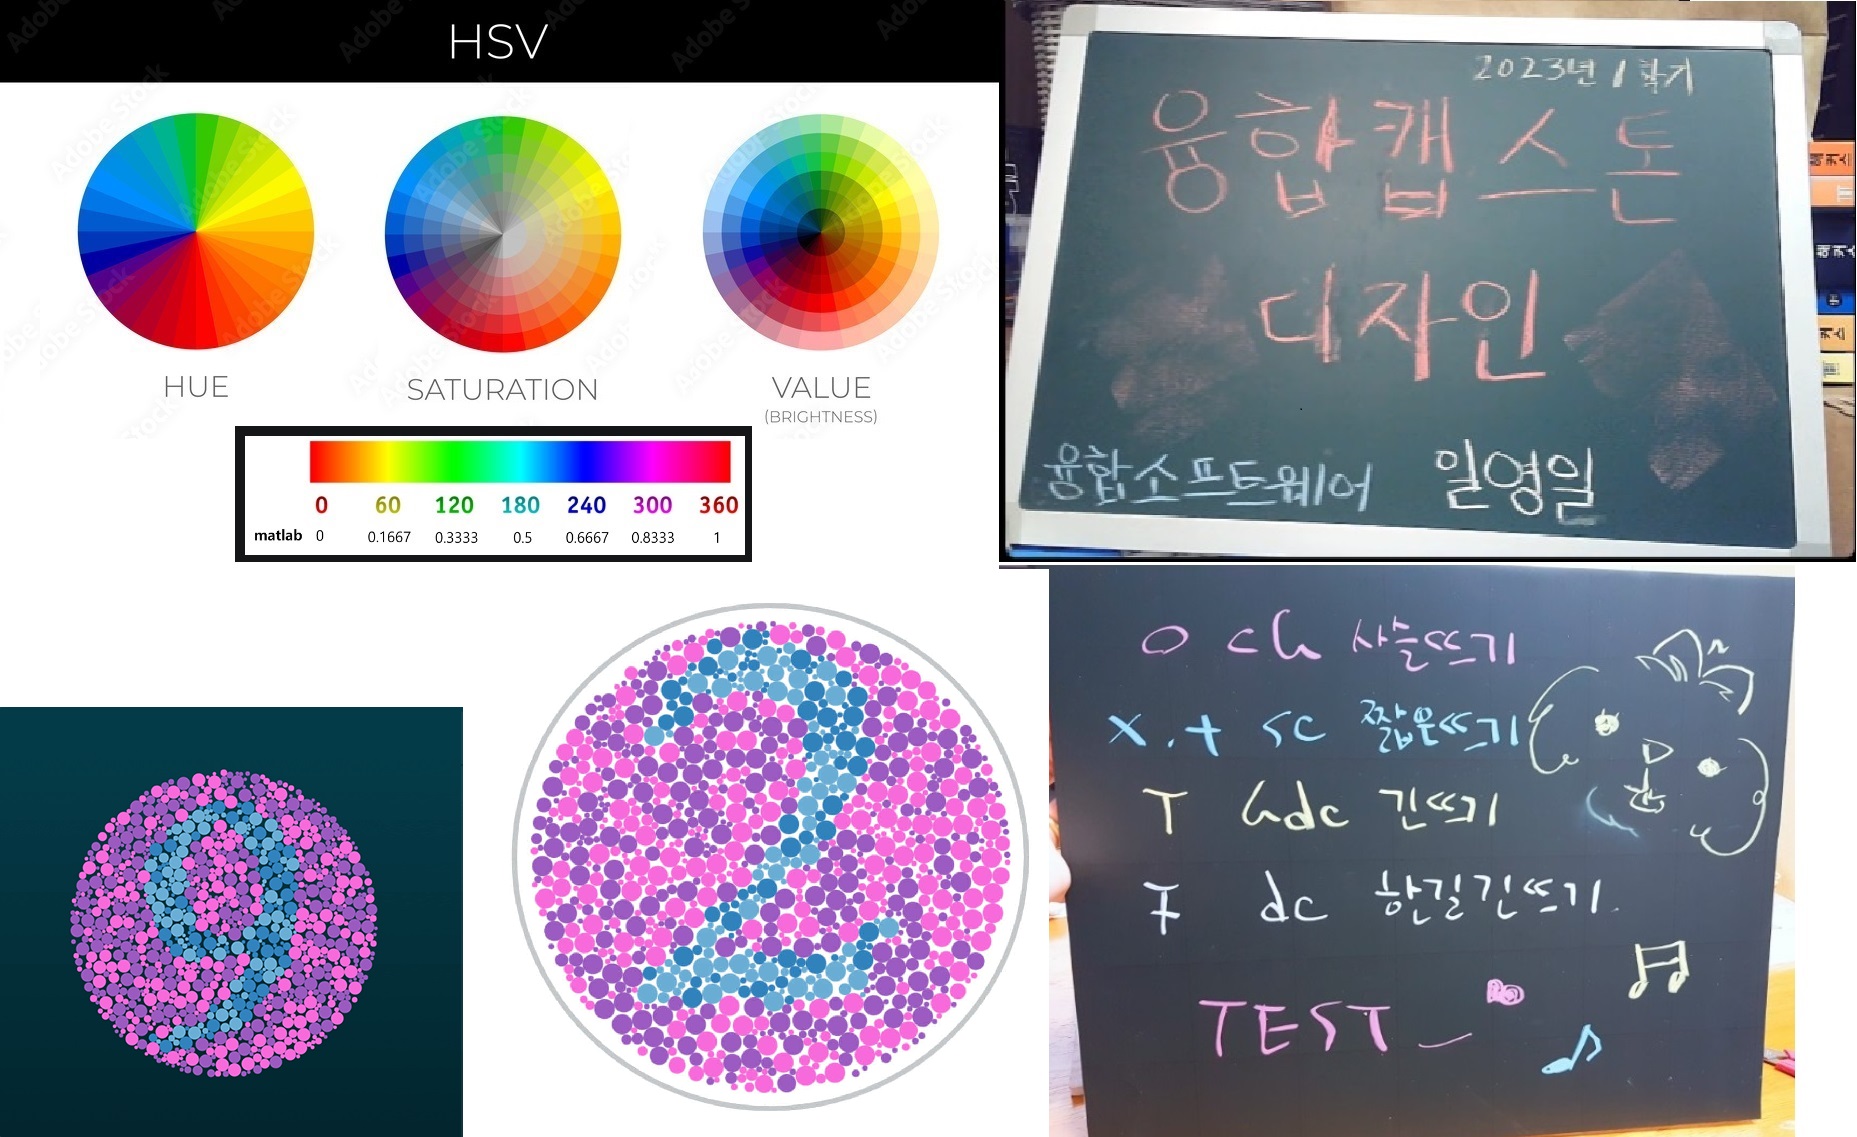 HSV
HUE
SATURATION
VALUE
(BRIGHTNESS)
0 60 120 180 240 300 360
matlab 0 0.1667 0.3333 0.5 0.6667 0.8333 1
2023년 1학기
융합캡스톤
디자인
융합소프트웨어 일영일
9
2
O ch 사슬뜨기
X.+ sc 짧은뜨기
T hdc 긴뜨기
F dc 한길긴뜨기
TEST_
Adobe Stock